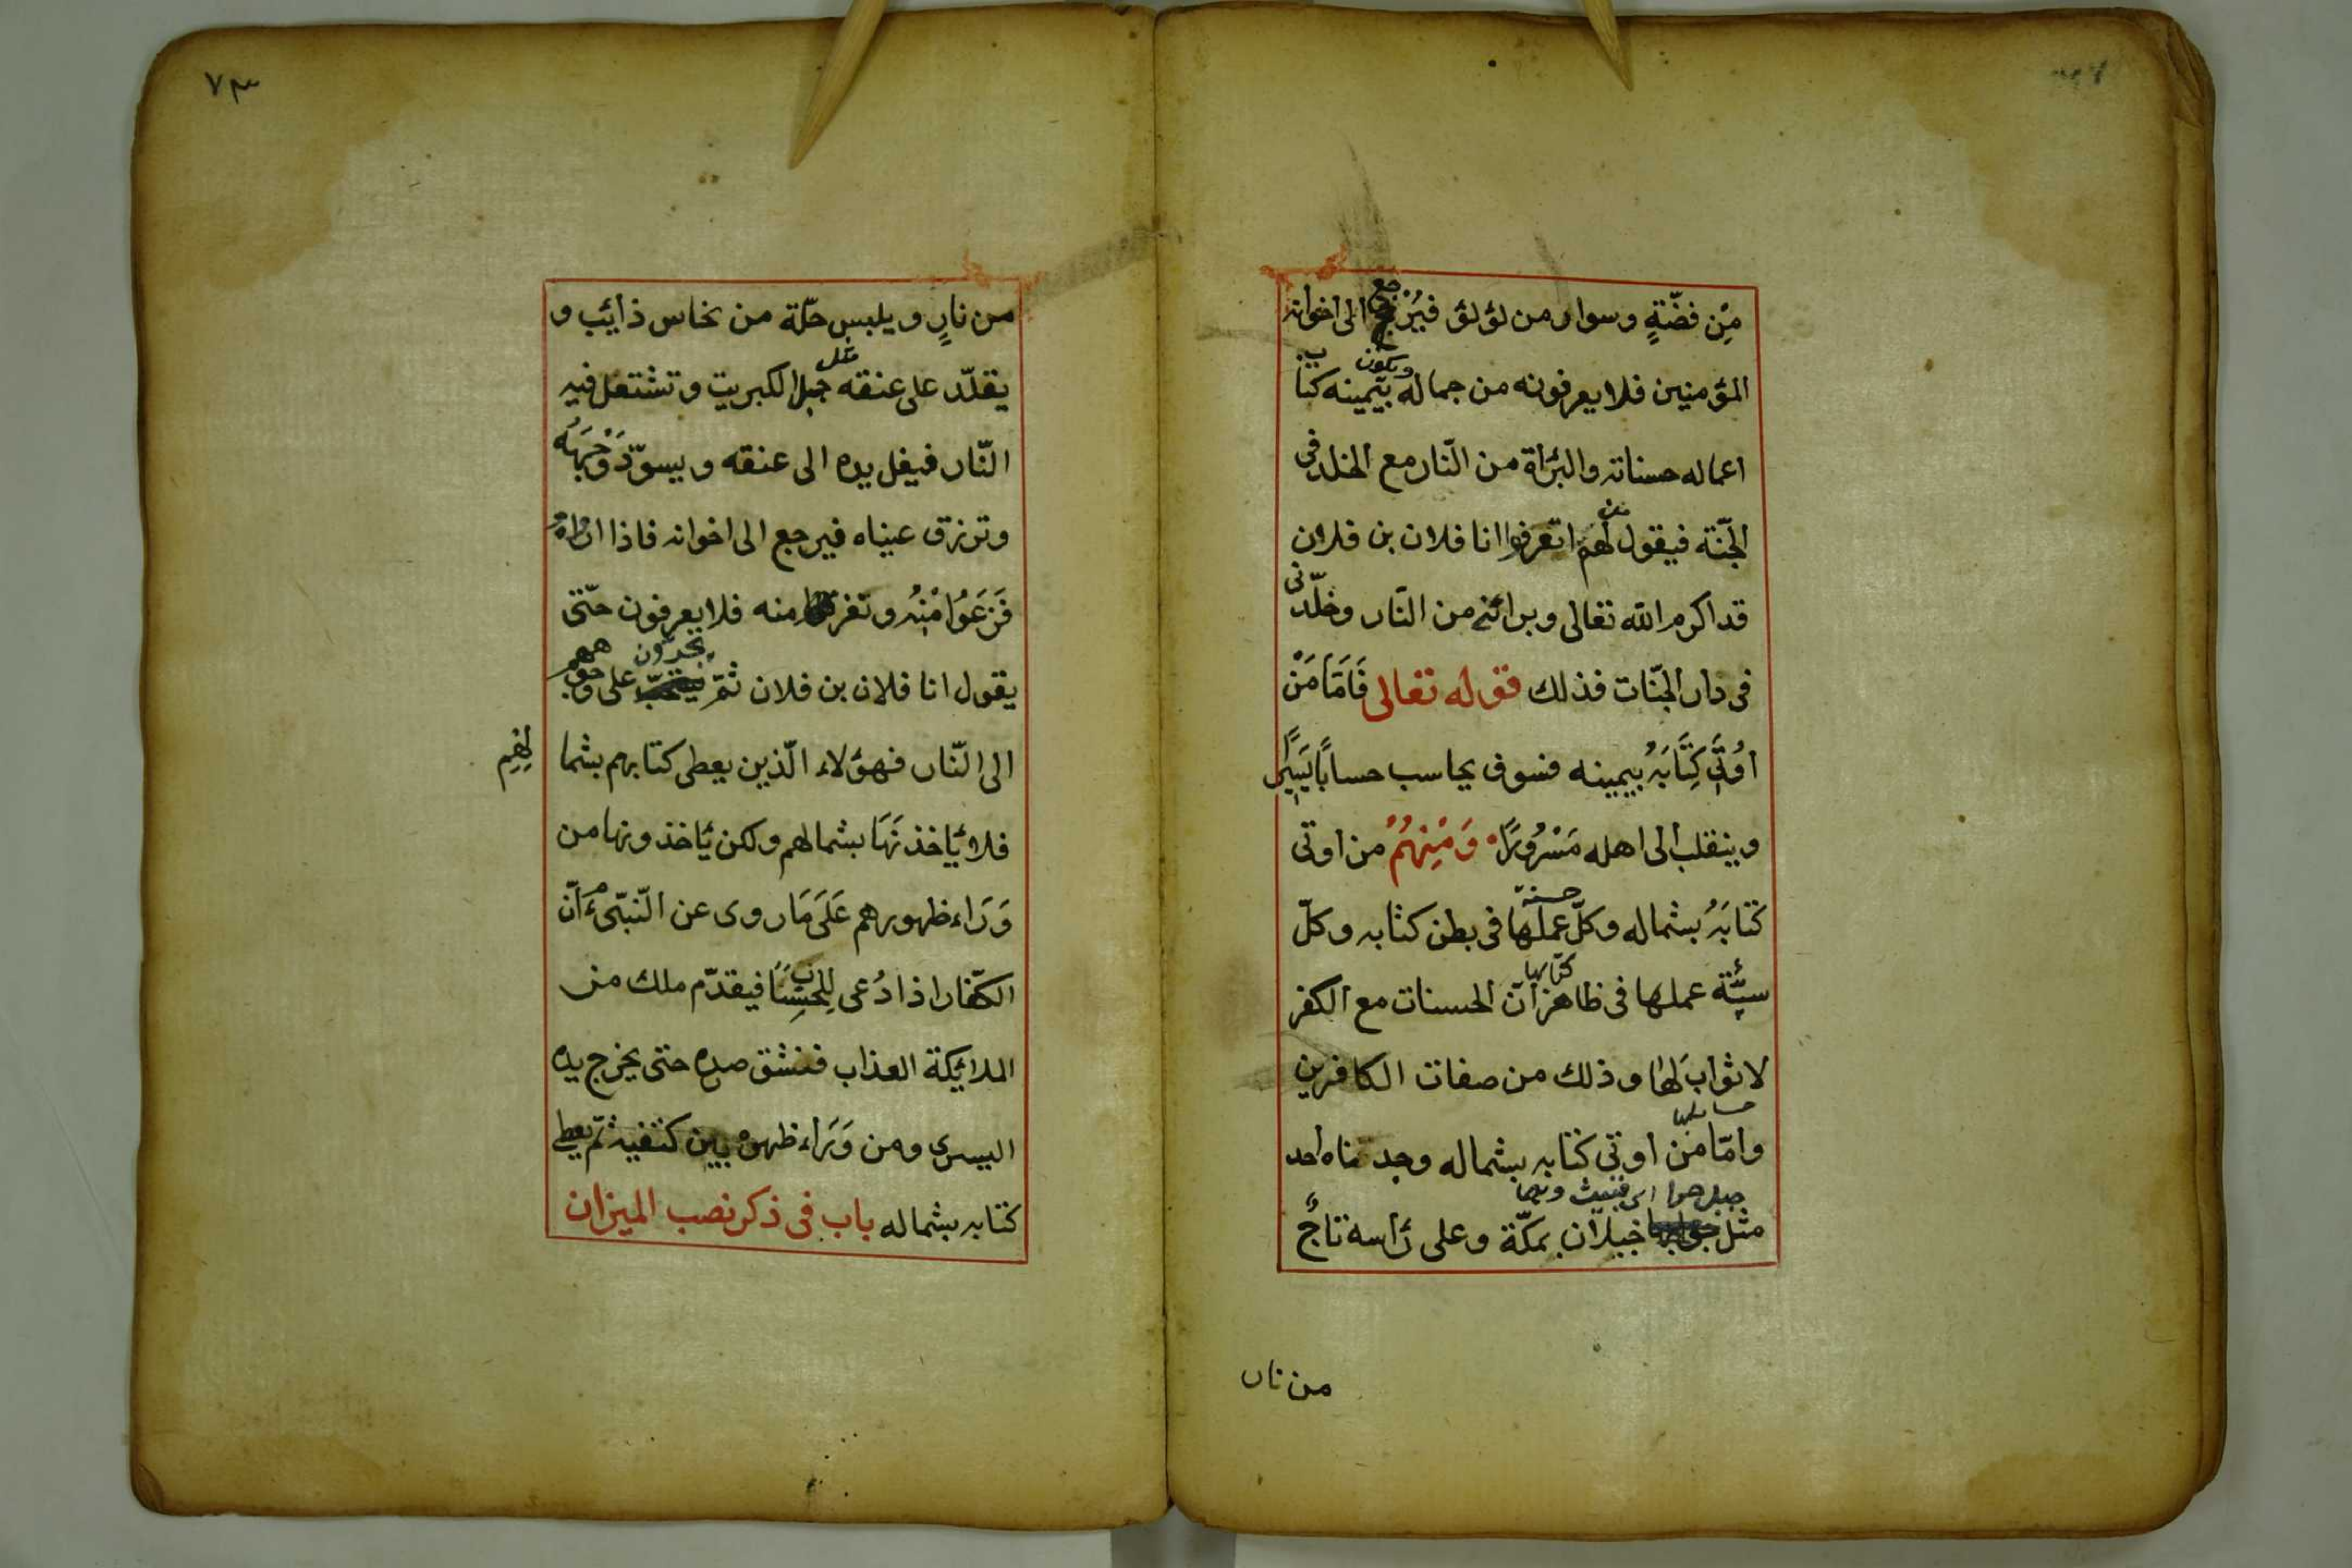 من فضّةٍ وسوار من لؤلؤ فيرجع الى اخوانه
المؤمنين فلا يعرفونه من جماله ويكون بيمينه كتاب
اعماله حسناته والبرٔاة من النّار مع الخلد فى
الجنّة فيقول لهم اتعرفوننى انا فلان بن فلان
قد اكرم الله تعالى وبرائنى من النّار وخلّدنى
فى دار الجنّات فذلك قوله تعالى فَاَمَّا مَنْ
اُوْتِىَ كِتَابَهُ بيمينه فسوف يحاسب حسابًا يَسِيرًا
وينقلب الى اهله مَسْرُورًا وَمِنْهُمْ من اوتى
كتابَهُ بشماله وكلّ حسنة عملها فى بطن كتابه وكلّ
سيّئة عملها فى ظاهر كتابها انّ الحسنات مع الكفر
لا ثوابَ لها وذلك من صفات الكافرين
وامّا من اوتى كتابه بشماله وجد احد
مثل جبلان بمكّة وعلى رٔاسه تاجٌ
من نار
٧٣
من نارٍ ويلبس حلّة من نحاس ذائب و
يقلّد على عنقه جبل الكبريت وتشتعل فيه
النّار فيغل يده الى عنقه ويسوّد وَجْهَهُ
وتزرق عيناه فيرجع الى اخوانه فاذا اراهُ
فَزَعَوُا مْنِهُ وتفر منه فلا يعرفون حتّى
يقول انا فلان بن فلان ثمّ يجرّون على وجوههم
الى النّار فهؤلاء الّذين يعطى كتابهم بشما
لِهِم
فلا ئاخذنَهَا بشمالهم ولكن ئاخذونها من
وَرَاء ظهورهم عَلَى مَا روى عن النّبىّ ءم اَنّ
الكفّار اذا دُعى لِلحِسَاب فيقدّم ملك من
الملائكة العذاب فنشق صدره حتى يخرج يده
اليسرى ومن وَرَاء ظهره بين كتفيه ثمّ يعطى
كتابه بشماله باب فى ذكر نصب الميزان